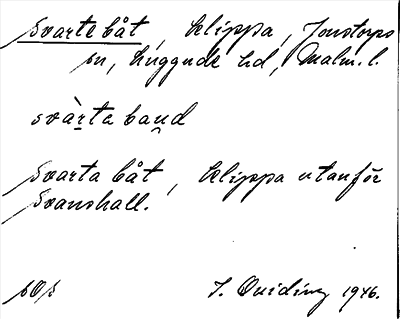 Svarte båt, klippa, Jonstorps
sn, Luggude hd, Malm. l.
svàrta baud
Svarta båt, klippa utanför
Svanshall.
sOs J. Quiding 1946.